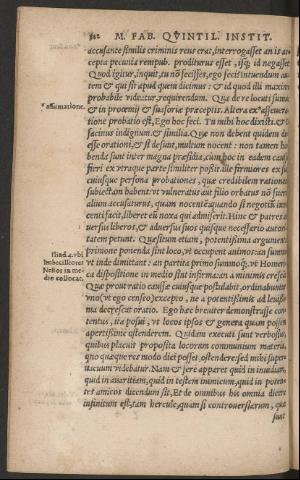 382 M. FAB. QVINTIL. INSTIT.
accusante similis criminis reus erat, interrogasset an is ac
cepta pecunia rempub. proditurus esset, isq; id negasset
Quod igitur, inquit, tu nō fecisses, ego feci? intuendum au
tem & qui sit apud quem dicimus: & id quod illi maxime
probabile videatur, requirendum. Qua de re locuti sumus
& in prooemij & suasoriae praeceptis. Altera ex asseuera
*affirmatione.
tione probatio est, Ego hoc feci. Tu mihi hoc dixisti. & O
facinus indignum. & similia. Quae non debent quidem de
esse orationi, & si desunt, multum nocent: non tamen ha
benda sunt inter magna praesidia, cum hoc in eadem causa
fieri ex vtraque parte similiter possit. Ille firmiores ex sua
cuiusque persona probationes, quae credibilem rationem
subiectam habent: vt vulneratus aut filio orbatus nō fuerit
alium accusaturus, quam nocentē: quando si negotiū inno
centi facit, liberet eū noxa qui admiserit. Hinc & patres ad
uersus liberos, & aduersus suos quisque necessarios aucto
ritatem petunt. Quaesitum etiam, potentissima argumenta
primone ponenda sint loco, vt occupent animos: an summo,
Iliad.4. vbi
Imbecilliores
Nestor in me-
dio collocat.
vt inde dimittant: an partita primo summoq́;, vt Homeri
ca dispositione in medio sint infirma: an a minimis crescāt
Quae prout ratio causae cuiusque postulabit, ordinabuntur
vno (vt ego censeo) excepto, ne a potentissimis ad leuissi
ma decrescat oratio. Ego haec breuiter demonstrasse con
tentus, ita posui, vt locos ipsos & genera quam possem
apertissime ostenderem. Quidam executi sunt verbosius,
quibus placuit proposita locorum communium materia,
quo quaeque res modo dici posset, ostendere: sed mihi super-
uacuum videbatur. Nam & fere apparet quid in inuidiam,
quid in auaritiam, quid in testem inimicum, quid in poten-
tes amicos dicendum sit, Et de omnibus his omnia dicere
infinitum est, tam hercule, quam si controuersiarum, quae
sunt